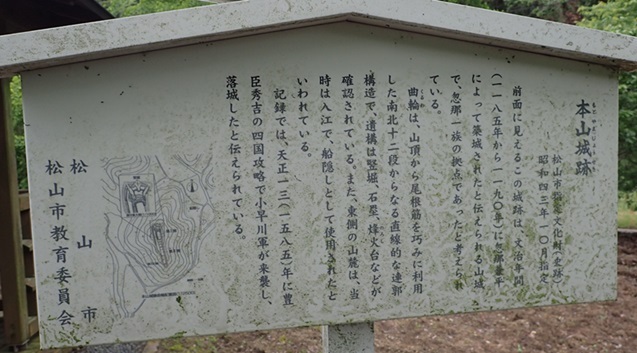 本山城跡
もとやまじょうあと
松山市指定文化財（史跡）
昭和四三年一〇月指定
前面に見えるこの城跡は、文治年間
（一一八五年から一一九〇年）に忽那兼平
によって築城されたと伝えられる山城
で、忽那一族の拠点であったと考えられ
ている。
曲輪は、山頂から尾根筋を巧みに利用
した南北十二段からなる直線的な連郭
構造で、遺構は竪堀、石塁、烽火台などが
確認されている。また、東側の山麓は、当
時は入江で、船隠しとして使用されたと
いわれている。
記録では、天正一三（一五八五）年に豊
臣秀吉の四国攻略で小早川軍が来襲し、
落城したと伝えられている。
松山市
松山市教育委員会